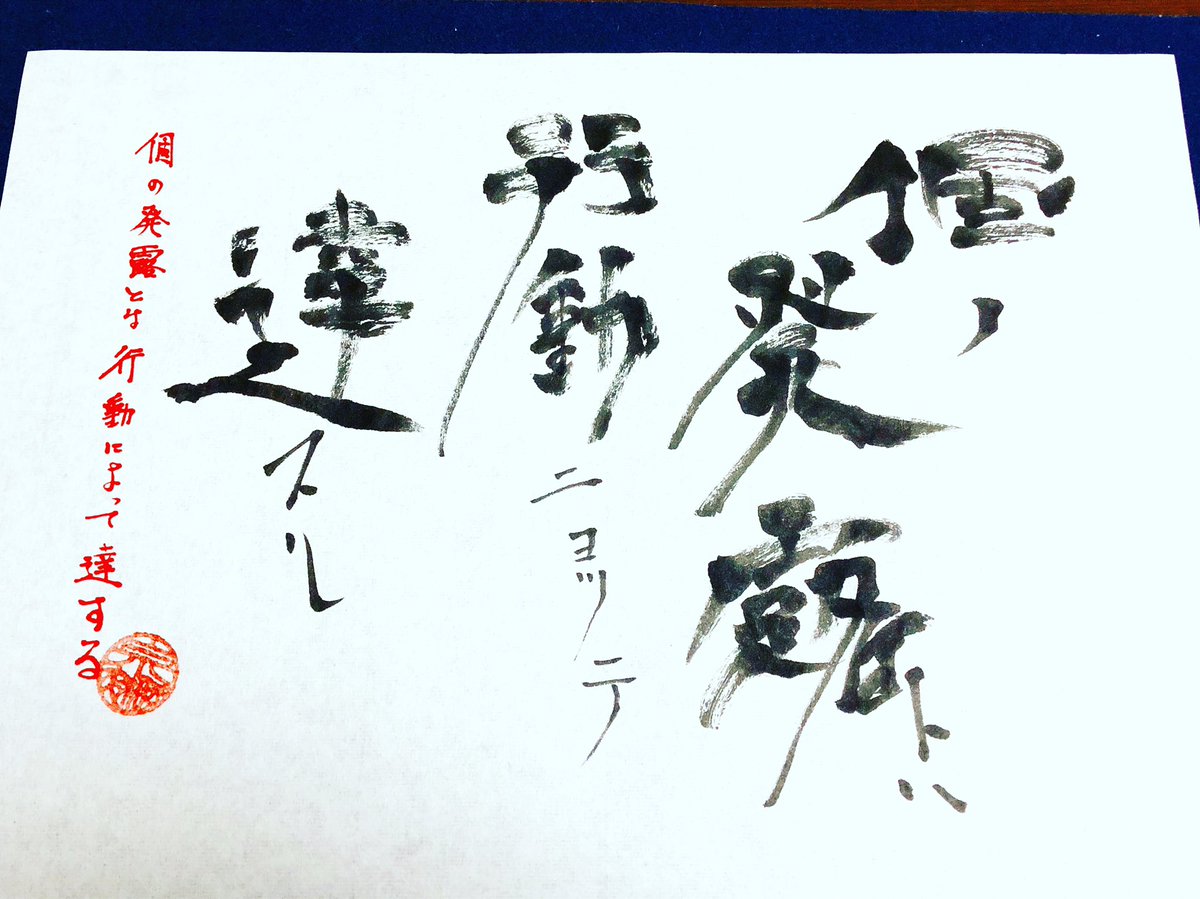 個ノ
発露トハ
行動ニヨッテ
達スル
個の発露とは行動によって達する